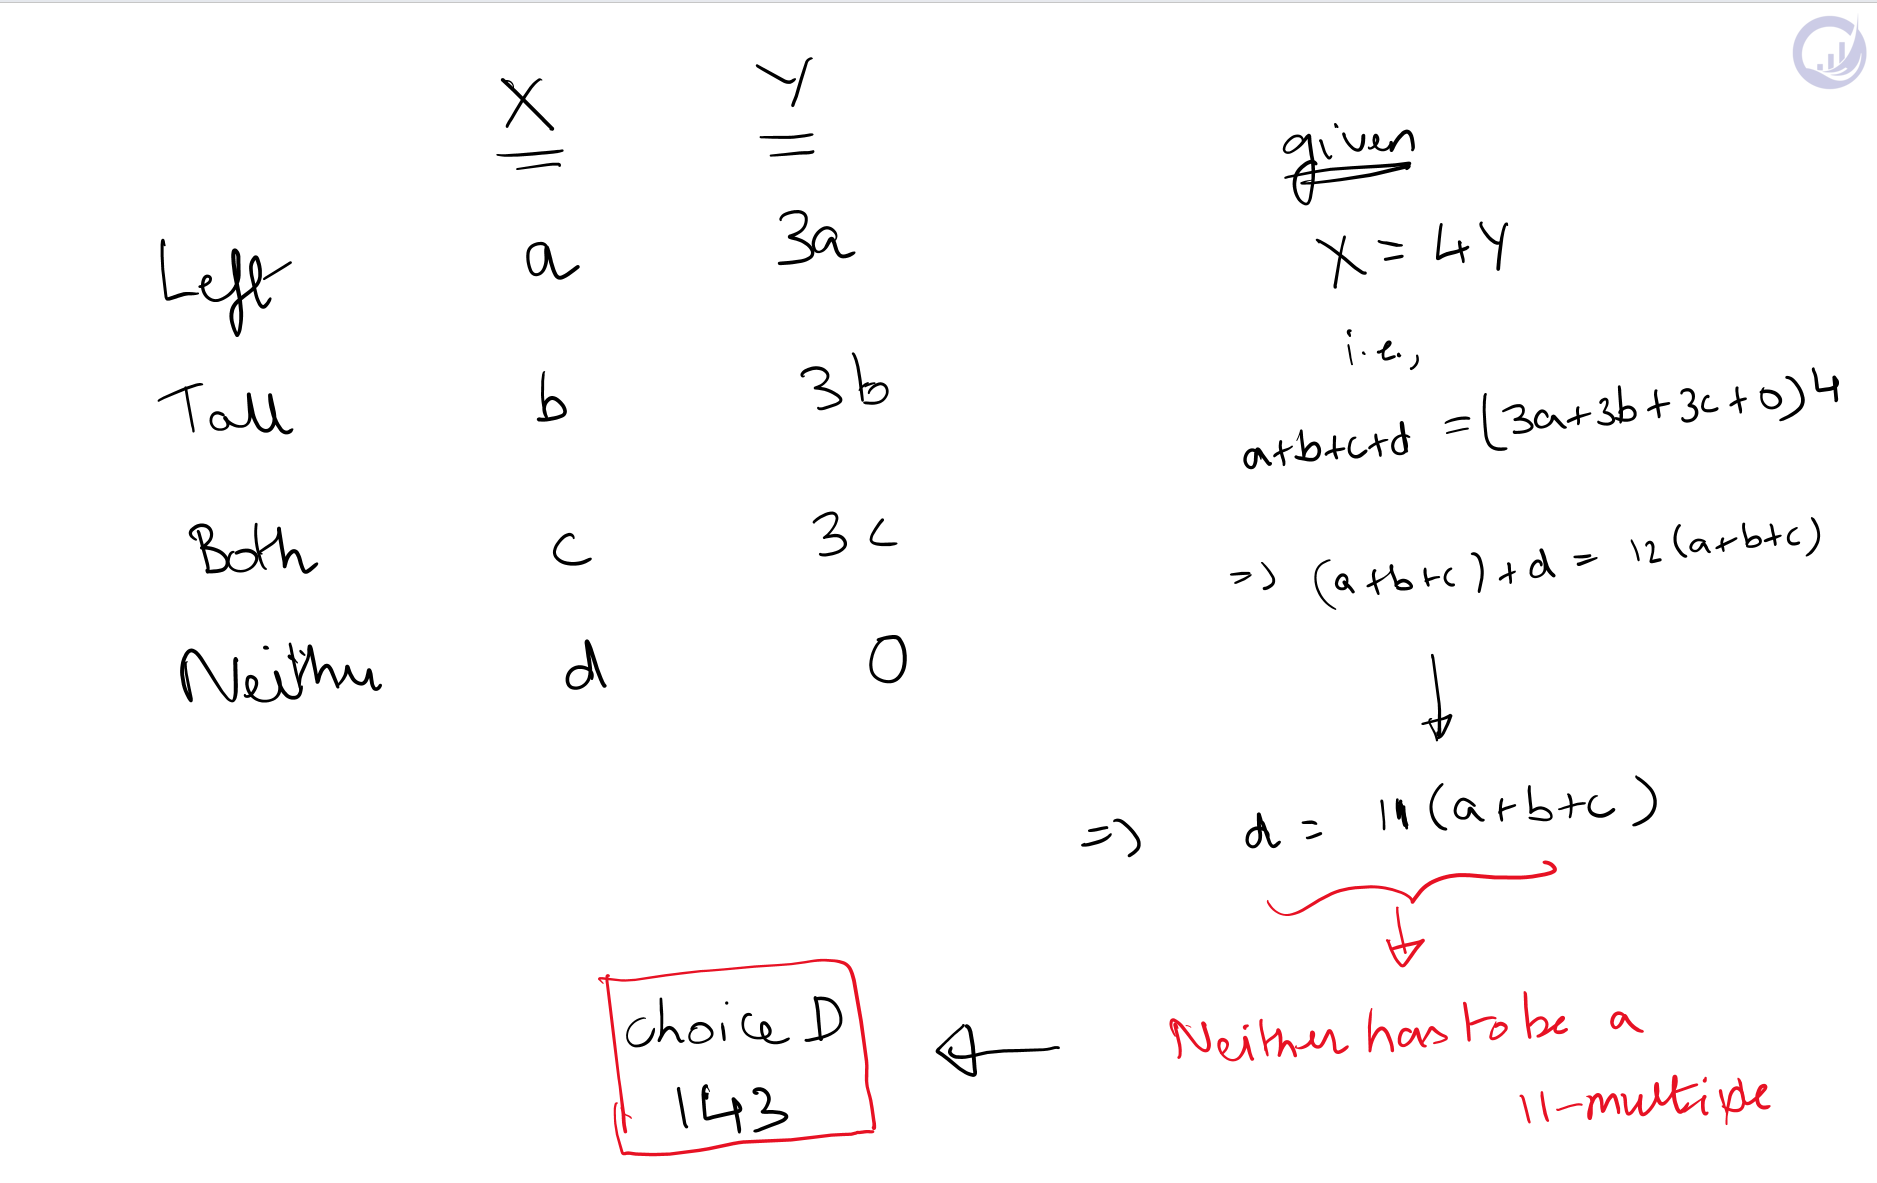 X Y
Left a 3a
Tall b 3b
Both c 3c
Neither d 0
given
X = 4Y
i.e.,
a+b+c+d = (3a+3b+3c+0)4
=> (a+b+c)+d = 12(a+b+c)
=> d = 11(a+b+c)
Neither has to be a
11-multiple
choice D
143